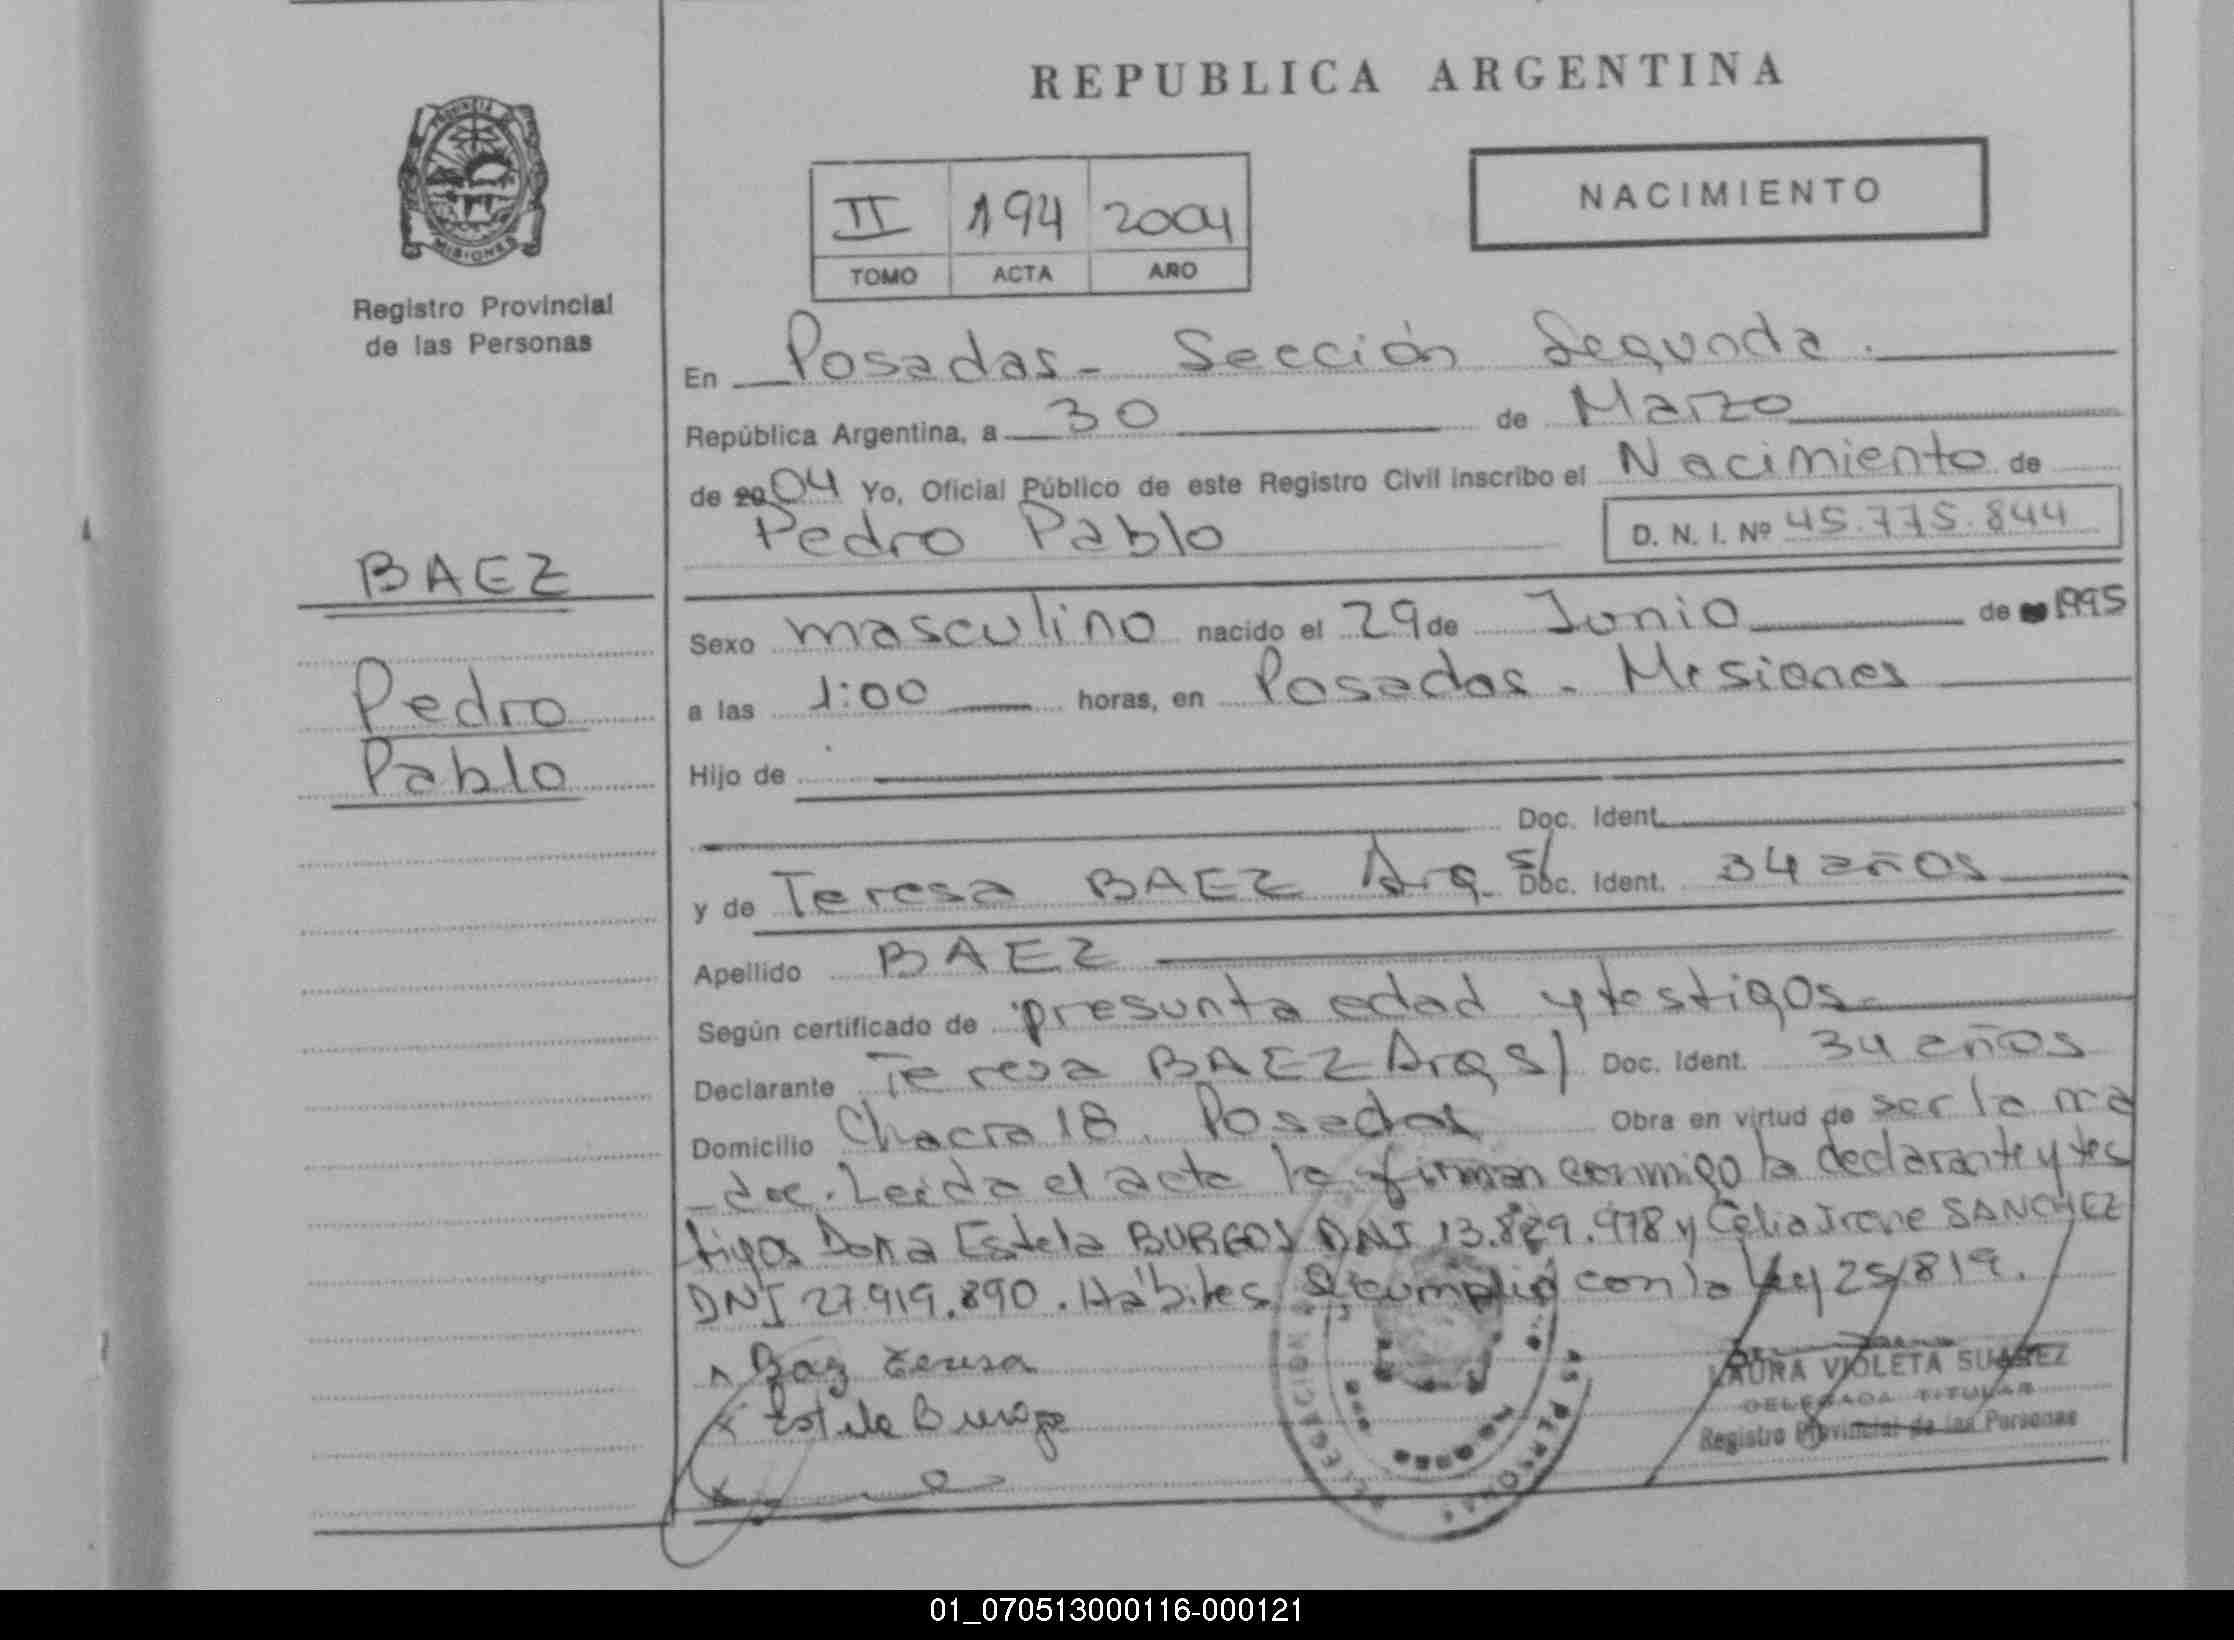 REPUBLICA ARGENTINA
PROVINCIA DE
MISIONES
Registro Provincial
de las Personas
II 194 2004
TOMO ACTA AÑO
NACIMIENTO
En Posadas - Sección Segunda.
República Argentina, a 30 de Marzo
de 2004 Yo, Oficial Público de este Registro Civil inscribo el Nacimiento de
Pedro Pablo
D. N. I. Nº 45.775.844
BAEZ
Pedro
Pablo
Sexo masculino nacido el 29 de Junio de 1995
a las 1:00 horas, en Posadas - Misiones
Hijo de
Doc. Ident.
y de Teresa BAEZ Arg. s/ Doc. Ident. 34 años
Apellido BAEZ
Según certificado de presunta edad y testigos.
Declarante Teresa BAEZ Arg S/ Doc. Ident. 34 años
Domicilio Chacra 18. Posadas Obra en virtud de ser la ma
dre. Leida el acta la firman conmigo la declarante y tes
tigos Doña Estela BURGOS DNI 13.829.978 y Celia Irene SANCHEZ
DNI 27.919.890. Hábiles Se cumplió con la Ley 25/819.
Baz teresa
Estela Burgo
LAURA VIOLETA SUAREZ
DELEGADA TITULAR
Registro Provincial de las Personas
DELEGACION
PERSONAS
01_070513000116-000121